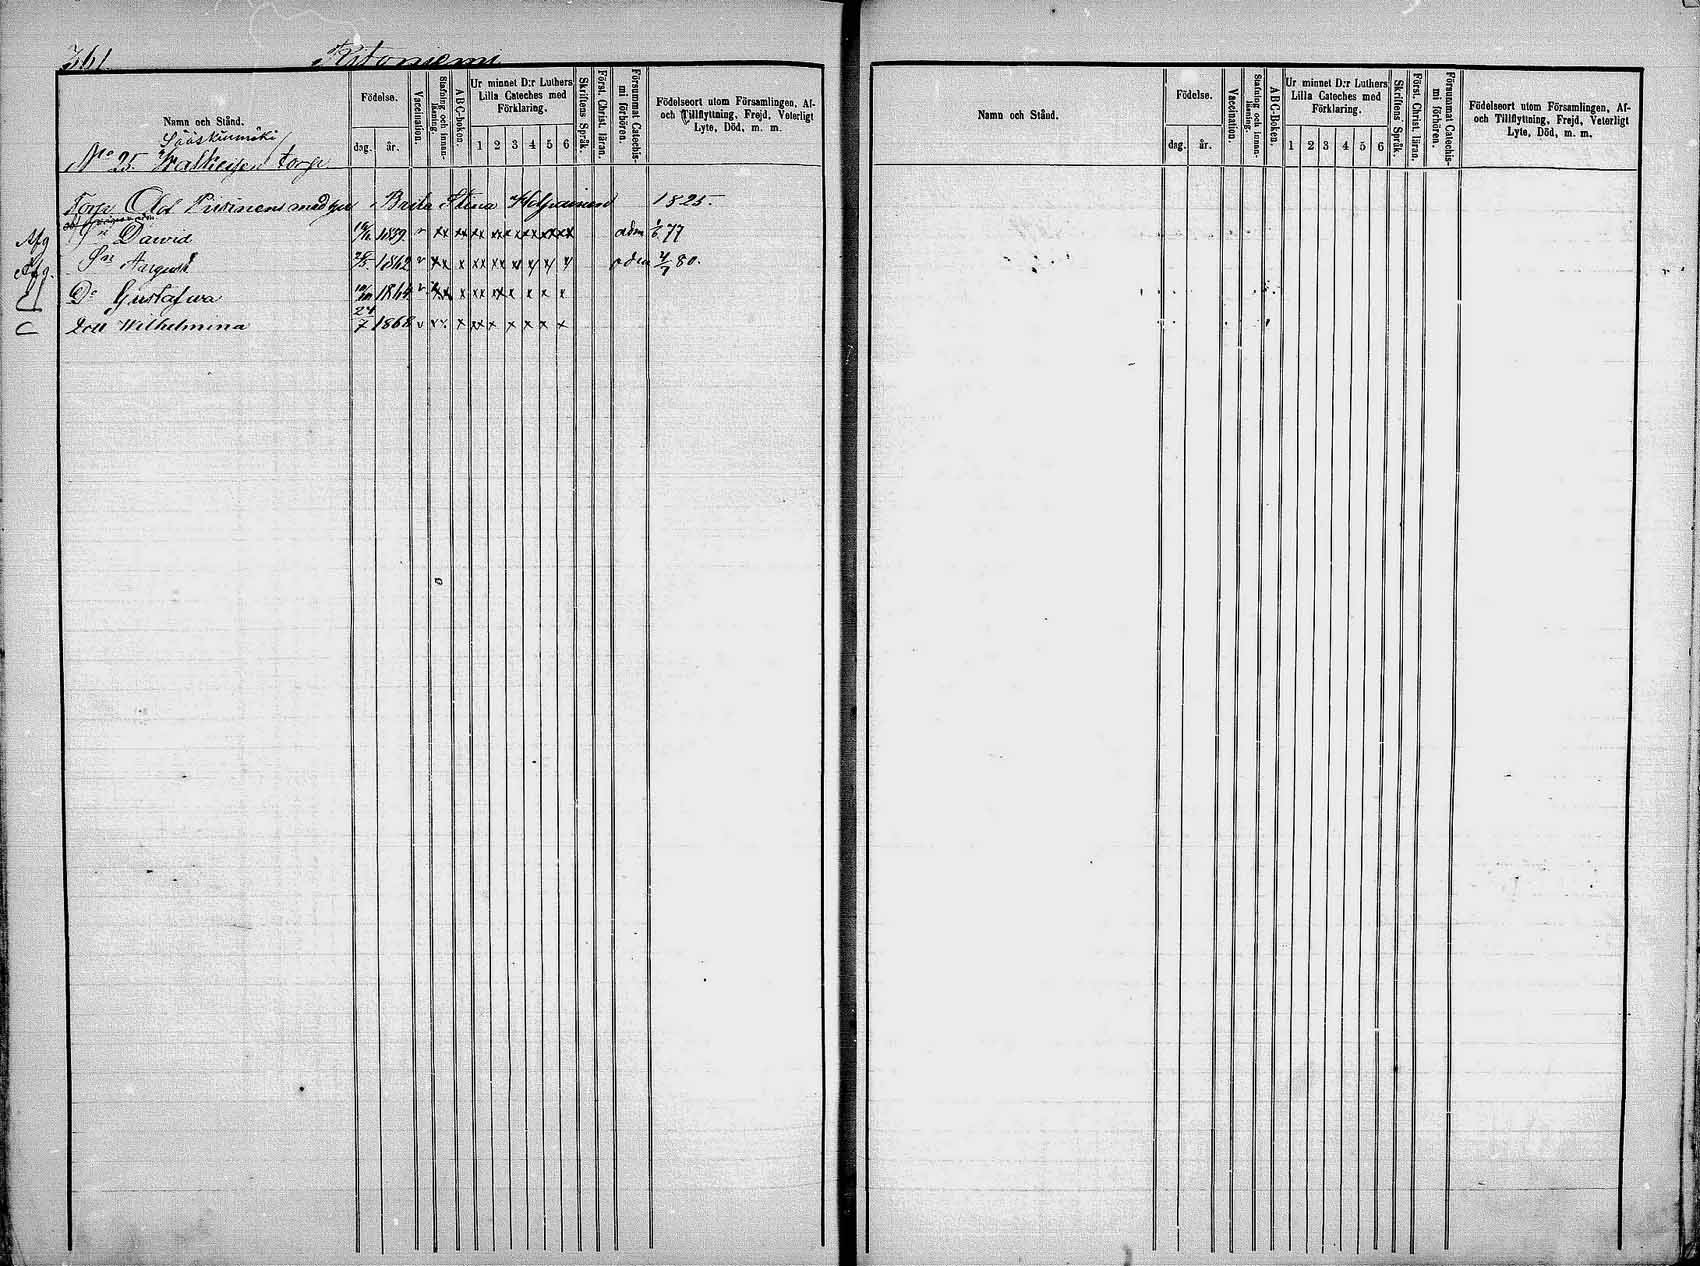 361. Kitoniemi
Namn och Stånd.
Födelse.
dag. år.
Vaccination.
Stafning och innanläsning.
A B C-boken.
Ur minnet D:r Luthers Lilla Cateches med Förklaring.
1 2 3 4 5 6
Skriftens Språk.
Först. Christ. läran.
Försummat Catechismi förhören.
Födelseort utom Församlingen, Af- och Tillflyttning, Frejd, Veterligt Lyte, Död, m. m.
Sääskiumäki
No 25. torp
Torp. Ad Piirinens med gu Brita Stina 1825.
Afg Sn Dawid 1859 v xx xx xx xx xx xx xx xx adm 1/6 77
Afg. Sn August 1862 v adm 4/7 80.
Dr Gustafwa 1864 v
C Dtr Wilhelmina 24/7 1868 v
Namn och Stånd.
Födelse.
dag. år.
Vaccination.
Stafning och innanläsning.
A B C-Boken.
Ur minnet D:r Luthers Lilla Cateches med Förklaring.
1 2 3 4 5 6
Skriftens Språk.
Först. Christ. läran.
Försummat Catechismi förhören.
Födelseort utom Församlingen, Af- och Tillflyttning, Frejd, Veterligt Lyte, Död, m. m.